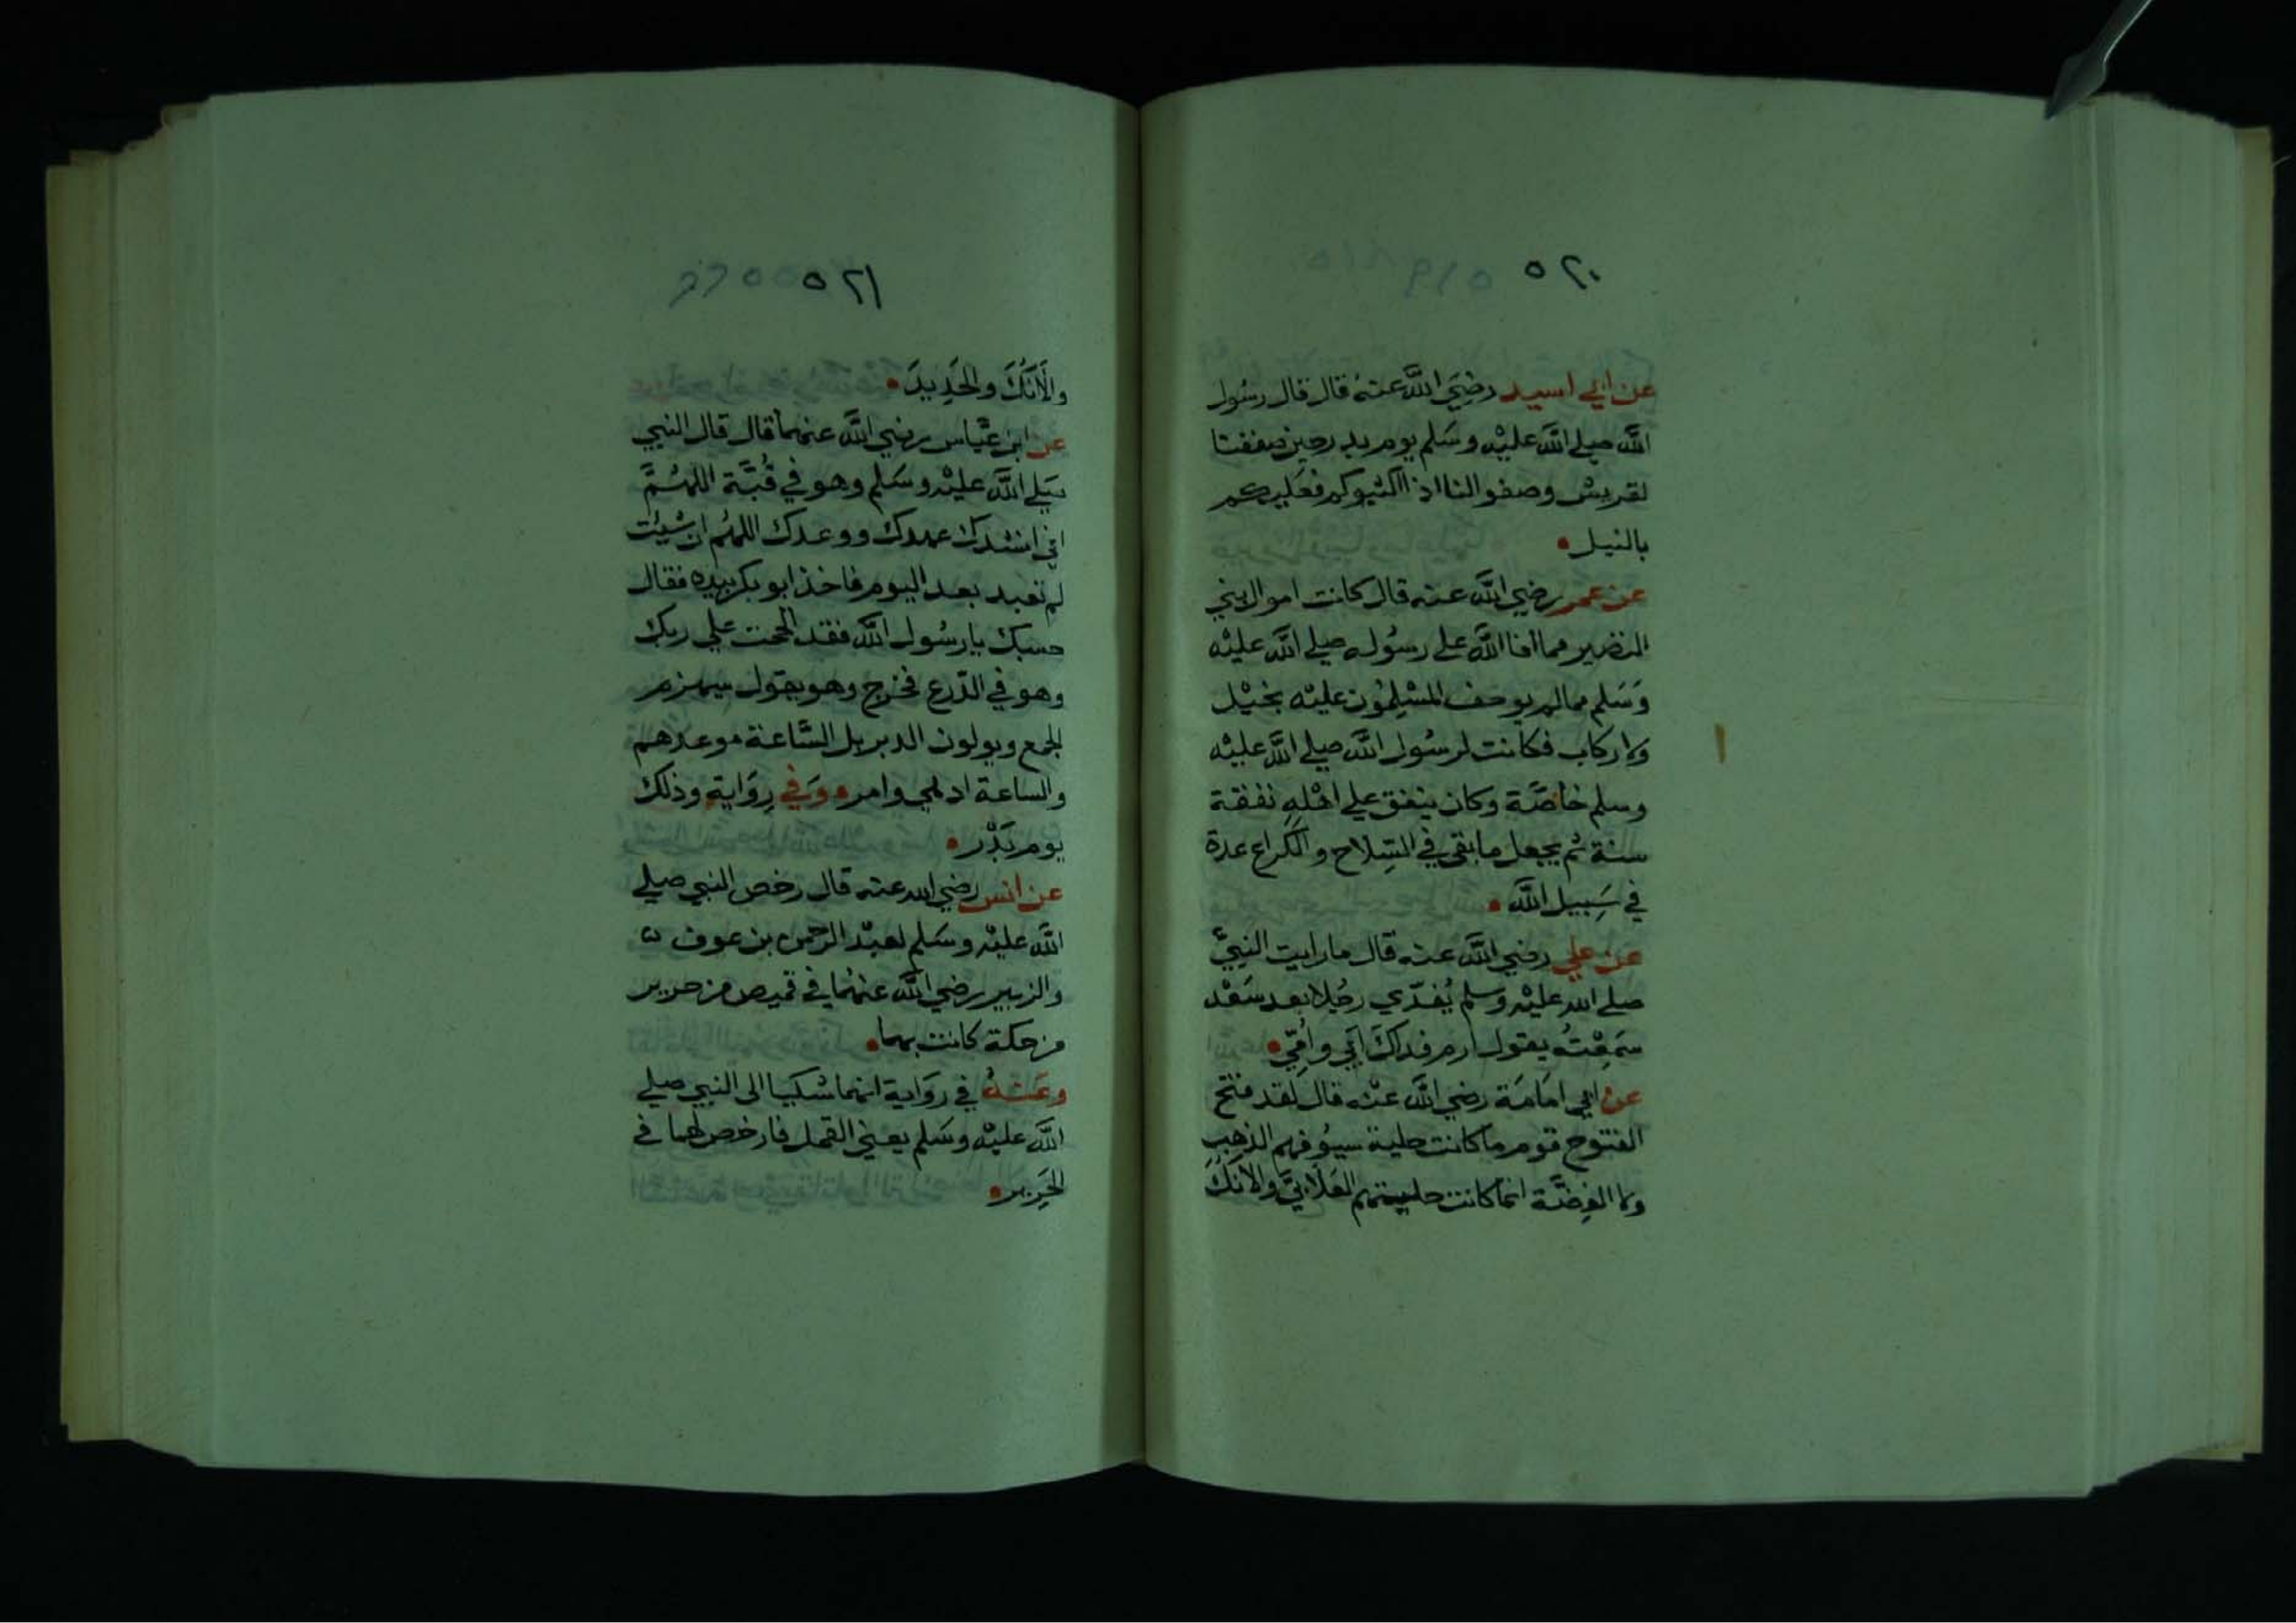 ٥٢٠
عن ابي اسيد رضي الله عنه قال قال رسول
الله صلي الله عليه وسلم يوم بدر حين صففنا
لقريش وصفوا لنا اذا اكثبوكم فعليكم
بالنبل
عن عمر رضي الله عنه قال كانت اموال بني
النضير مما افا الله علي رسوله صلي الله عليه
وسلم مما لم يوجف المسلمون عليه بخيل
ولا ركاب فكانت لرسول الله صلي الله عليه
وسلم خاصة وكان ينفق علي اهله نفقة
سنة ثم يجعل ما بقي في السلاح والكراع عدة
في سبيل الله
عن علي رضي الله عنه قال ما رايت النبي
صلي الله عليه وسلم يفدي رجلا بعد سعد
سمعته يقول ارم فداك ابي وامي
عن ابي امامة رضي الله عنه قال لقد فتح
الفتوح قوم ما كانت حلية سيوفهم الذهب
ولا الفضة انما كانت حليتهم العلابي والانك
٥٢١
والانك والحديد
عن ابن عباس رضي الله عنهما قال قال النبي
صلي الله عليه وسلم وهو في قبة اللهم
اني انشدك عهدك ووعدك اللهم ان شيت
لم تعبد بعد اليوم فاخذ ابو بكر بيده فقال
حسبك يا رسول الله فقد الححت علي ربك
وهو في الدرع فخرج وهو يقول سيهزم
الجمع ويولون الدبر بل الساعة موعدهم
والساعة ادهي وامر وفي رواية وذلك
يوم بدر
عن انس رضي الله عنه قال رخص النبي صلي
الله عليه وسلم لعبد الرحمن بن عوف
والزبير رضي الله عنهما في قميص من حرير
من حكة كانت بهما
وعنه في رواية انهما شكيا الى النبي صلي
الله عليه وسلم يعني القمل فارخص لهما في
الحرير